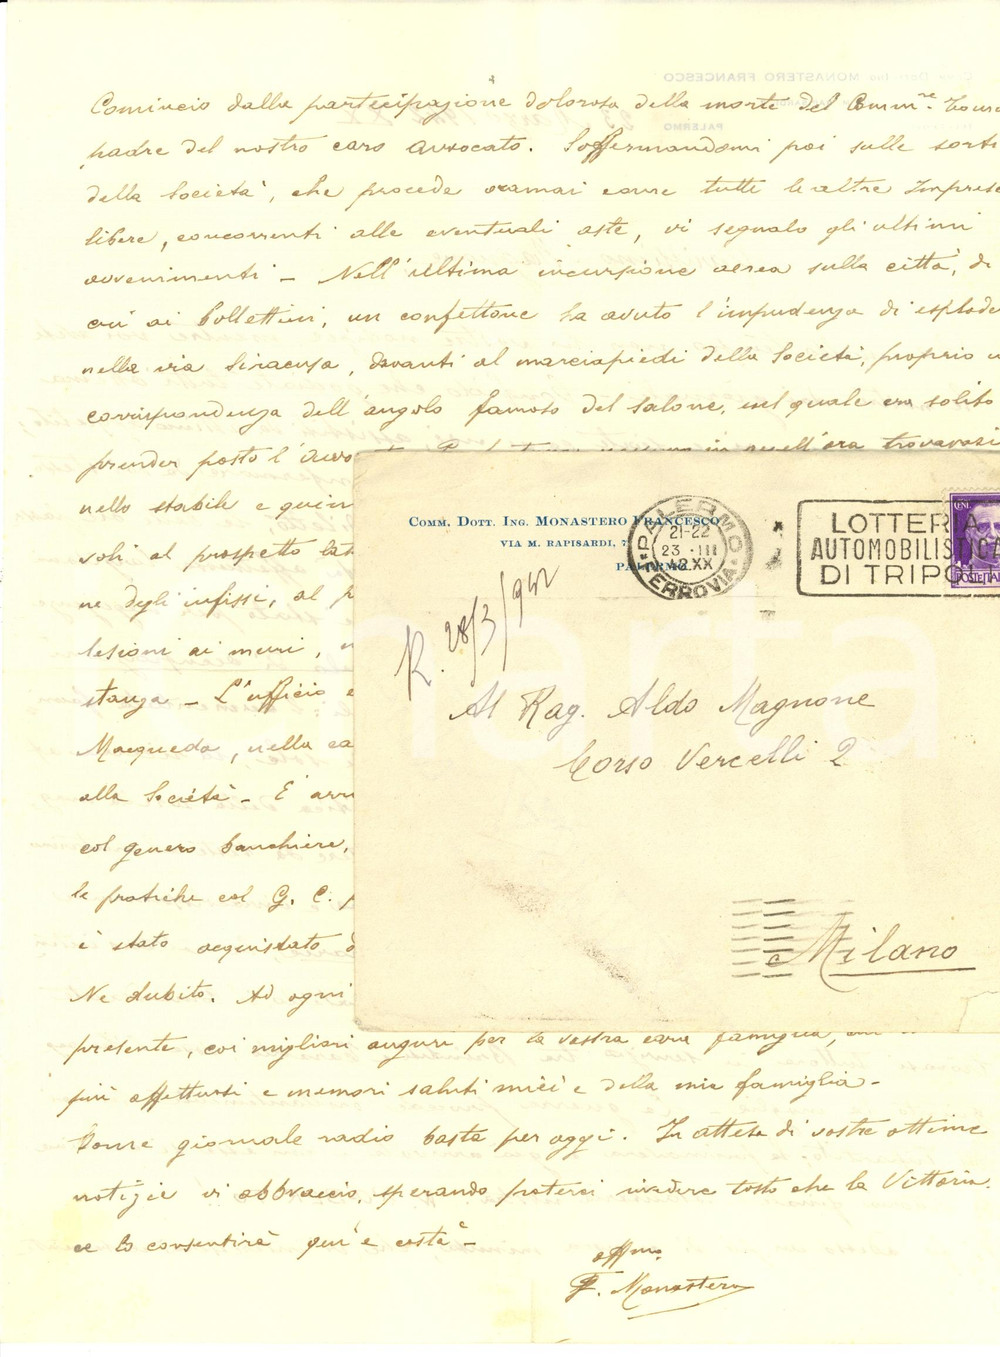 Comincio dalla partecipazione dolorosa della morte del Comm.re
padre del nostro caro Avvocato. Soffermandomi poi sulle sorti
della Società, che procede oramai come tutte le altre Imprese
libere, concorrenti alle eventuali aste, vi segnalo gli ultimi
avvenimenti - Nell'ultima incursione aerea sulla città, di
cui ai bollettini, un confettone ha avuto l'impudenza di esplode
nella via Siracusa, davanti al marciapiedi della Società, proprio
corrispondenza dell'angolo famoso del salone, nel quale era solito
prender posto l' in quell'ora trovavasi
nello stabile e quin
soli al prospetto lat
ne degli infissi, al p
lesioni ai muri,
stanza - L'ufficio
Maqueda, nella ca
alla Società - E' arr
col genero banchiere,
le pratiche col G. C.
è stato acquistato d
Ne dubito. Ad ogni
presente, coi migliori auguri per la vostra cara famiglia,
più affettuosi e memori saluti miei e della mia famiglia -
Come giornale radio basta per oggi. In attesa di vostre ottime
notizie vi abbraccio, sperando poterci rivedere tosto che la Vittoria
ce lo consentirà qui e costà -
affmo.
F. Monastero
COMM. DOTT. ING. MONASTERO FRANCESCO
VIA M. RAPISARDI, 7
PALERMO
PALERMO
21-22
23 . III
42.XX
FERROVIA
LOTTERIA
AUTOMOBILISTICA
DI TRIPOLI
POSTE ITAL
R. 28/3/942
Al Rag. Aldo Magnone
Corso Vercelli 2
Milano